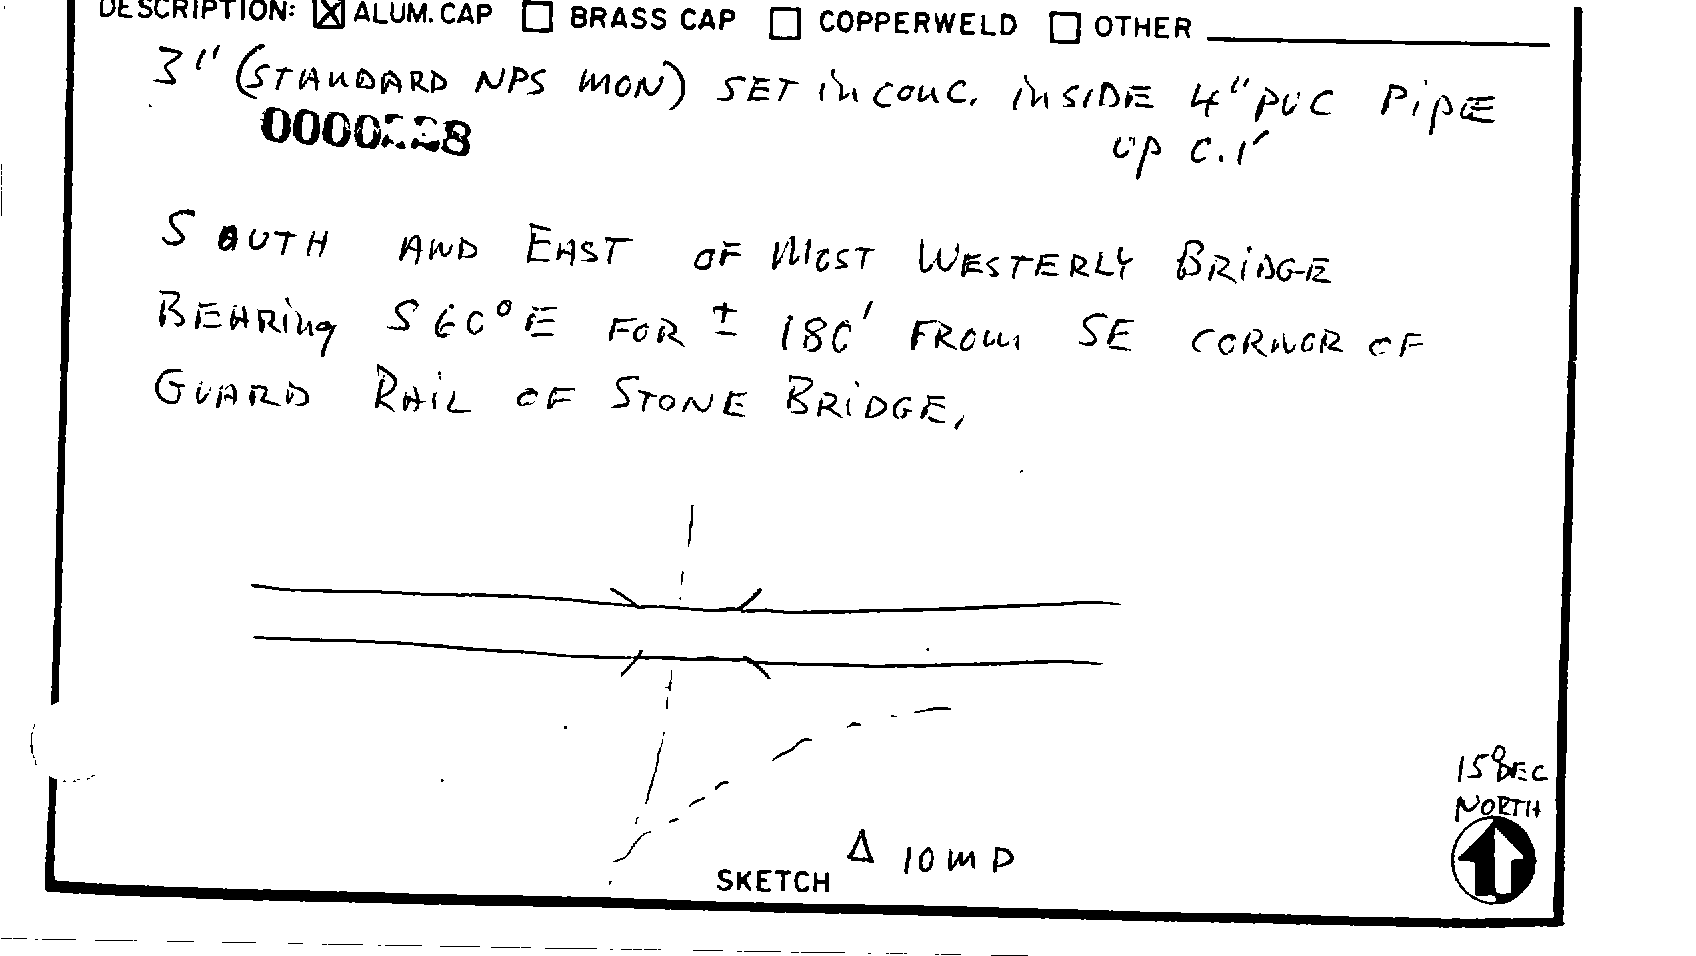 DESCRIPTION: ☒ ALUM. CAP ☐ BRASS CAP ☐ COPPERWELD ☐ OTHER
3" (STANDARD NPS MON) SET in conc. inSIDE 4" PVC PiPE
UP 0.1'
SOUTH AND EAST OF MOST WESTERLY BRiDGE
BEARing S 60° E FOR ± 180' FROM SE CORNOR OF
GUARD RAiL OF STONE BRiDGE.
15° DEC
NORTH
Δ 10 MD
SKETCH